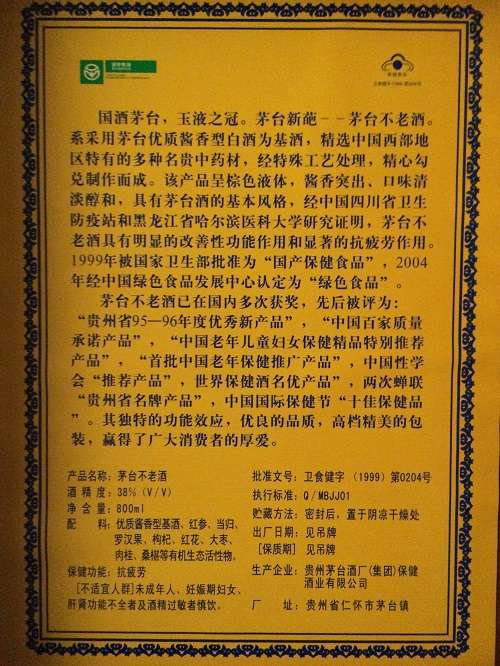 国酒茅台，玉液之冠。茅台新葩--茅台不老酒。
系采用茅台优质酱香型白酒为基酒，精选中国西部地
区特有的多种名贵中药材，经特殊工艺处理，精心勾
兑制作而成。该产品呈棕色液体，酱香突出、口味清
淡醇和，具有茅台酒的基本风格，经中国四川省卫生
防疫站和黑龙江省哈尔滨医科大学研究证明，茅台不
老酒具有明显的改善性功能作用和显著的抗疲劳作用。
1999年被国家卫生部批准为“国产保健食品”，2004
年经中国绿色食品发展中心认定为“绿色食品”。
茅台不老酒已在国内多次获奖，先后被评为：
“贵州省95—96年度优秀新产品”，“中国百家质量
承诺产品”，“中国老年儿童妇女保健精品特别推荐
产品”，“首批中国老年保健推广产品”，中国性学
会“推荐产品”，世界保健酒名优产品”，两次蝉联
“贵州省名牌产品”，中国国际保健节“十佳保健品
”。其独特的功能效应，优良的品质，高档精美的包
装，赢得了广大消费者的厚爱。
产品名称：茅台不老酒
酒 精 度：38%（V/V）
净 含 量：800ml
配 料：优质酱香型基酒、红参、当归、
罗汉果、枸杞、红花、大枣、
肉桂、桑椹等有机生态活性物。
保健功能：抗疲劳
[不适宜人群]未成年人、妊娠期妇女、
肝肾功能不全者及酒精过敏者慎饮。
批准文号：卫食健字（1999）第0204号
执行标准：Q/MBJJ01
贮藏方法：密封后，置于阴凉干燥处
出厂日期：见吊牌
[保质期] 见吊牌
生产企业：贵州茅台酒厂(集团)保健
酒业有限公司
厂 址：贵州省仁怀市茅台镇